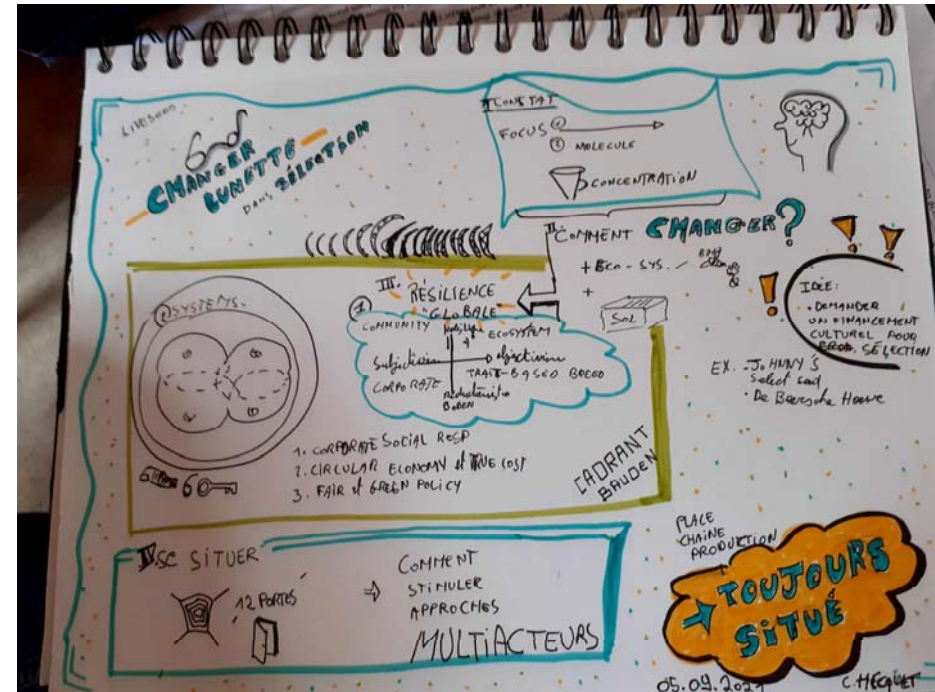 LIVESEED
CHANGER
LUNETTE
DANS SÉLECTION
I CONSTAT
FOCUS
① MOLECULE
CONCENTRATION
II. COMMENT CHANGER?
+ ECO-SYS. /
+
SOL
IDÉE:
• DEMANDER
UN FINANCEMENT
CULTUREL POUR
SÉLECTION
EX. - JOHNNY'S
select seed
• De
III.
RÉSILIENCE
"GLOBALE"
①
COMMUNITY
ECOSYSTEM
Subjectivisme
objectivisme
CORPORATE
TRAIT-BASED
② SYSTEMS.
1. CORPORATE SOCIAL RESP
2. CIRCULAR ECONOMY et TRUE COST
3. FAIR et GREEN POLICY
6
CADRANT
BAUDEN
SITUER
12 PORTES
⇒
COMMENT
STIMULER
APPROCHES
MULTIACTEURS
PLACE
CHAINE
PRODUCTION
→ TOUJOURS
SITUÉ
C. HECQUET